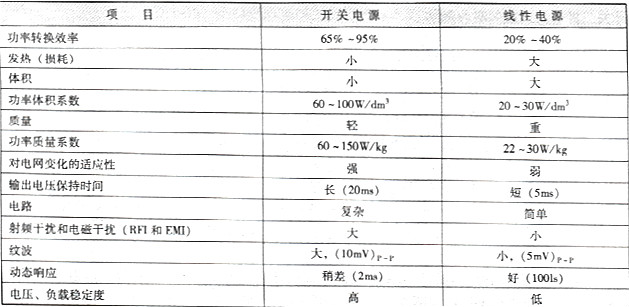 项 目 开关电源 线性电源
功率转换效率 65%~95% 20%~40%
发热（损耗） 小 大
体积 小 大
功率体积系数 60~100W/dm³ 20~30W/dm³
质量 轻 重
功率质量系数 60~150W/kg 22~30W/kg
对电网变化的适应性 强 弱
输出电压保持时间 长（20ms） 短（5ms）
电路 复杂 简单
射频干扰和电磁干扰（RFI和EMI） 大 小
纹波 大，(10mV)P-P 小，(5mV)P-P
动态响应 稍差（2ms） 好（100ls）
电压、负载稳定度 高 低